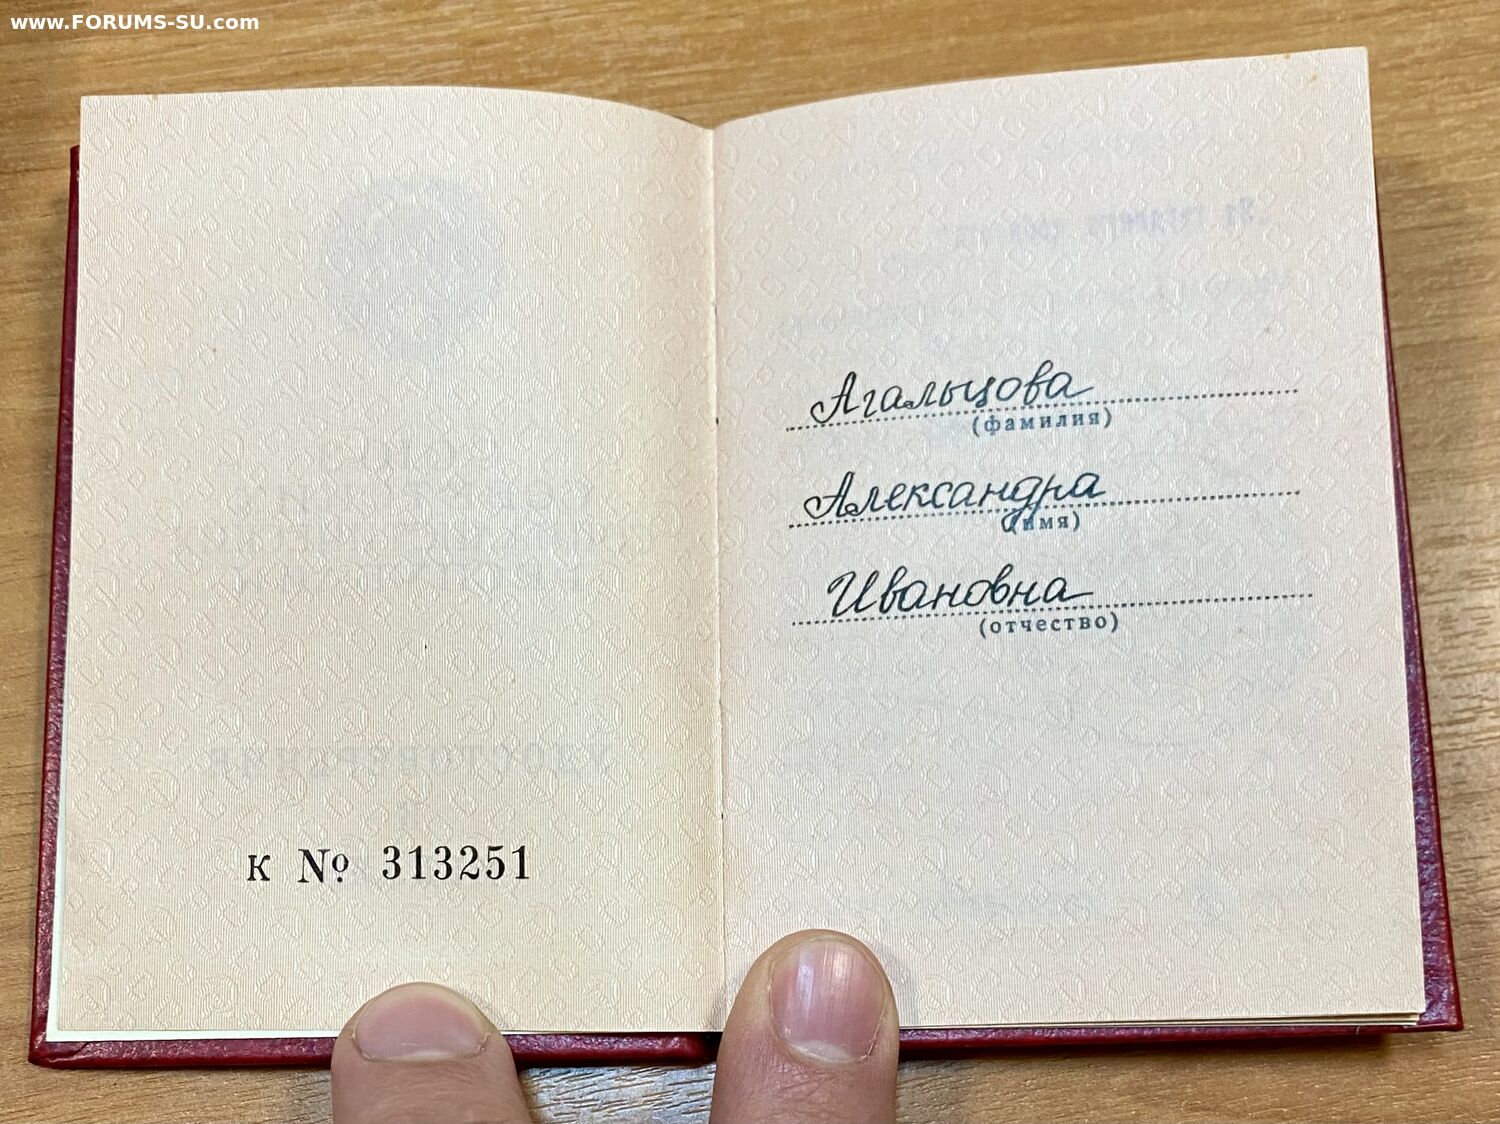 www.FORUMS-SU.com
К № 313251
Агальцова
(фамилия)
Александра
(имя)
Ивановна
(отчество)